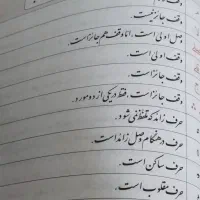 وقف جائز نیست.
وصل اولی است، اما وقف هم جائز است.
وقف اولی است.
وقف جائز است.
وقف جائز است، فقط در یکی از دو مورد.
حرف زائد که تلفظ نمی شود.
حرف در هنگام وصل زائد است.
حرف ساکن است.
حرف مقلوب است.